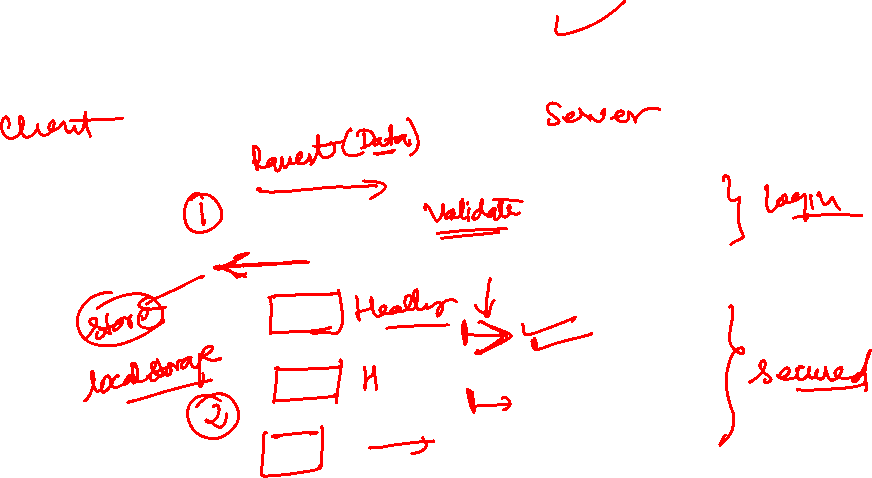 Client
Server
Request (Data)
1
Validate
Login
Store
localstorage
H
2
Secured